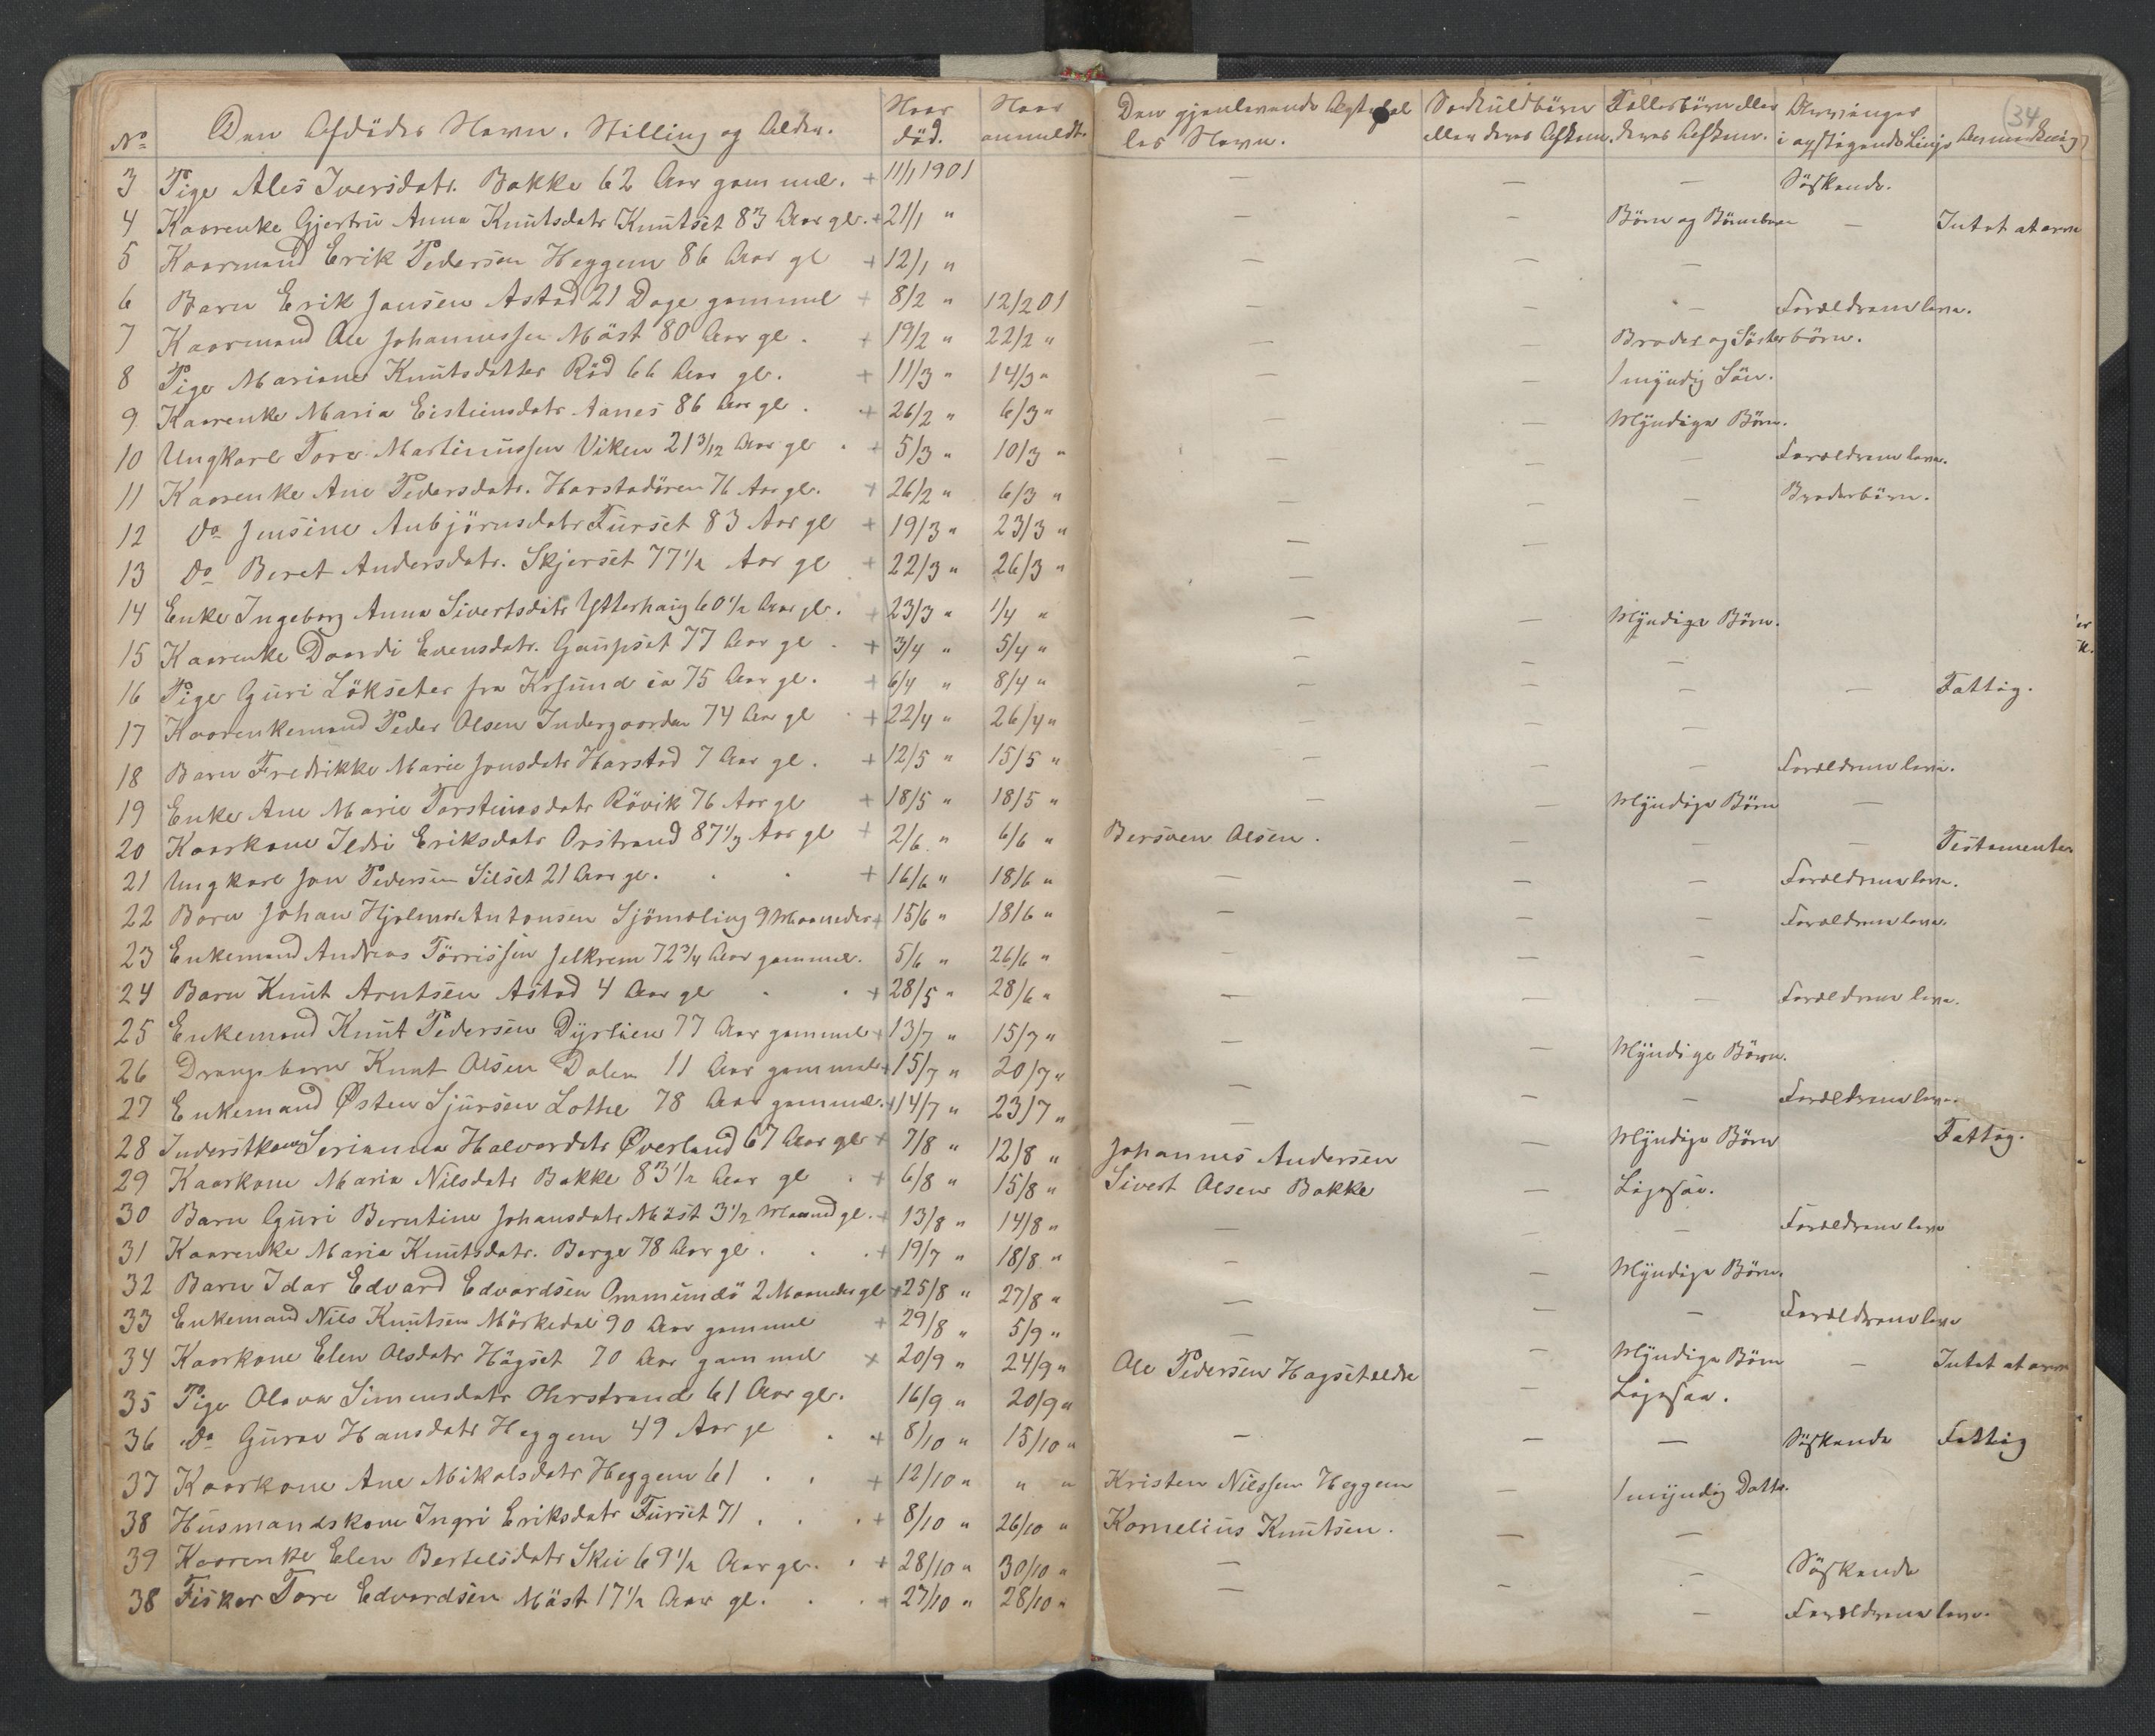 34
No Den Afdödes Navn, Stilling og Alder. Naar död. Naar anmeldt. Den gjenlevende Ægtefæl les Navn. Særkuldbörn eller deres Afkom. Fællesbörn eller deres Afkom. Arvinger i opstigende Linje Anmærkning
3 Pige Ales Iversdatr. Bakke 62 Aar gammel. + 11/1 1901 — — — Söskende.
4 Kaarenke Gjertru Anna Knutsdatr Knutset 83 Aar gl. + 21/1 " — — Börn og Börnebörn — Intet at arve
5 Kaarmand Erik Pedersen Heggem 86 Aar gl + 12/1 " — — —
6 Barn Erik Jansen Astad 21 Dage gammel + 8/2 " 12/2 01 — — — Forældrene leve.
7 Kaarmand Ole Johannessen Mäst 80 Aar gl. + 19/2 " 22/2 " — — Broder og Sösterbörn.
8 Pige Mariane Knutsdatter Röd 66 Aar gl. + 11/3 " 14/3 " — — 1 myndig Sön.
9 Kaarenke Maria Eisteinsdatr Aanes 86 Aar gl. + 26/2 " 6/3 " — — Myndige Börn.
10 Ungkarl Tore Martinussen Viken 21 3/12 Aar gl. + 5/3 " 10/3 " — — — Forældrene leve.
11 Kaarenke Ane Pedersdatr. Harstadören 76 Aar gl. + 26/2 " 6/3 " — — — Broderbörn.
12 Do Jensine Anbjörnsdatr Furset 83 Aar gl + 19/3 " 23/3 " — —
13 Do Beret Andersdatr. Skjerset 77 1/2 Aar gl + 22/3 " 26/3 " —
14 Enke Ingeborg Anna Sivertsdatr Ytterhaug 60 1/2 Aar gl. + 23/3 " 1/4 " — — Myndige Börn.
15 Kaarenke Daardi Evensdatr. Gaupset 77 Aar gl. + 3/4 " 5/4 " — — —
16 Pige Guri Lökseter fra Krsund ca 75 Aar gl. + 6/4 " 8/4 " — — — — Fattig.
17 Kaarenkemand Peder Olsen Indergaarden 74 Aar gl. + 22/4 " 26/4 " — — —
18 Barn Fredrikke Marie Jonsdatr Harstad 7 Aar gl. + 12/5 " 15/5 " — — — Forældrene leve.
19 Enke Ane Marie Torsteinsdatr Rövik 76 Aar gl + 18/5 " 18/5 " — — Myndige Börn —
20 Kaarkone Ildri Eriksdatr Orstrand 87 1/3 Aar gl + 2/6 " 6/6 " Bersven Olsen. — — — Testamente
21 Ungkarl Jon Pedersen Silset 21 Aar gl. + 16/6 " 18/6 " — — — Forældrene leve.
22 Barn Johan Hjalmar Antonsen Sjömæling 9 Maaneder + 15/6 " 18/6 " — — — Forældrene leve.
23 Enkemand Andreas Törrissen Jelkrem 72 3/4 Aar gammel. 5/6 " 26/6 " — — —
24 Barn Knut Arntsen Astad 4 Aar gl. + 28/5 " 28/6 " — — — Forældrene leve.
25 Enkemand Knut Pedersen Dyrlien 77 Aar gammel + 13/7 " 15/7 " — — Myndige Börn.
26 Drengebarn Knut Olsen Dalen 11 Aar gammel + 15/7 " 20/7 " — — — Forældrene leve.
27 Enkemand Østen Sjursen Lothe 78 Aar gammel. + 14/7 " 23/7 " — — Myndige Börn Fattig.
28 Inderstkone Serianna Halvordatr Øverland 67 Aar gl + 7/8 " 12/8 " Johannes Andersen
29 Kaarkone Maria Nilsdatr Bakke 83 1/2 Aar gl. + 6/8 " 15/8 " Sivert Olsen Bakke — Ligesaa.
30 Barn Guri Berntine Johansdatr Mäst 3 1/2 Maaned gl. + 13/8 " 14/8 " — — Forældrene leve
31 Kaarenke Maria Knutsdatr. Berge 78 Aar gl. + 19/7 " 18/8 " — — Myndige Börn.
32 Barn Idar Edvard Edvardsen Ommundö 2 Maaneder gl + 25/8 " 27/8 " — — — Forældrene leve
33 Enkemand Nils Knutsen Mörkedal 90 Aar gammel + 29/8 " 5/9 " — — Myndige Börn — Intet at arve
34 Kaarkone Elen Olsdatr Högset 70 Aar gammel + 20/9 " 24/9 " Ole Pedersen Hagset — Ligesaa.
35 Pige Olava Simensdatr Ohrstrand 61 Aar gl. 16/9 " 20/9 "
36 Do Guroe Hansdatr Heggem 49 Aar gl. + 8/10 " 15/10 " — — — Söskende Fattig
37 Kaarkone Ane Mikalsdatr Heggem 61 . . + 12/10 " " " Kristen Nilssen Heggem — 1 myndig Datter.
38 Husmandskone Ingri Eriksdatr Furset 71 . . + 8/10 " 26/10 " Kornelius Knutsen. — —
39 Kaarenke Elen Bertelsdatr Skei 69 1/2 Aar gl. + 28/10 " 30/10 " — — Söskende
38 Fisker Tore Edvardsen Mäst 17 1/2 Aar gl. + 27/10 " 28/10 " — — — Forældrene leve.